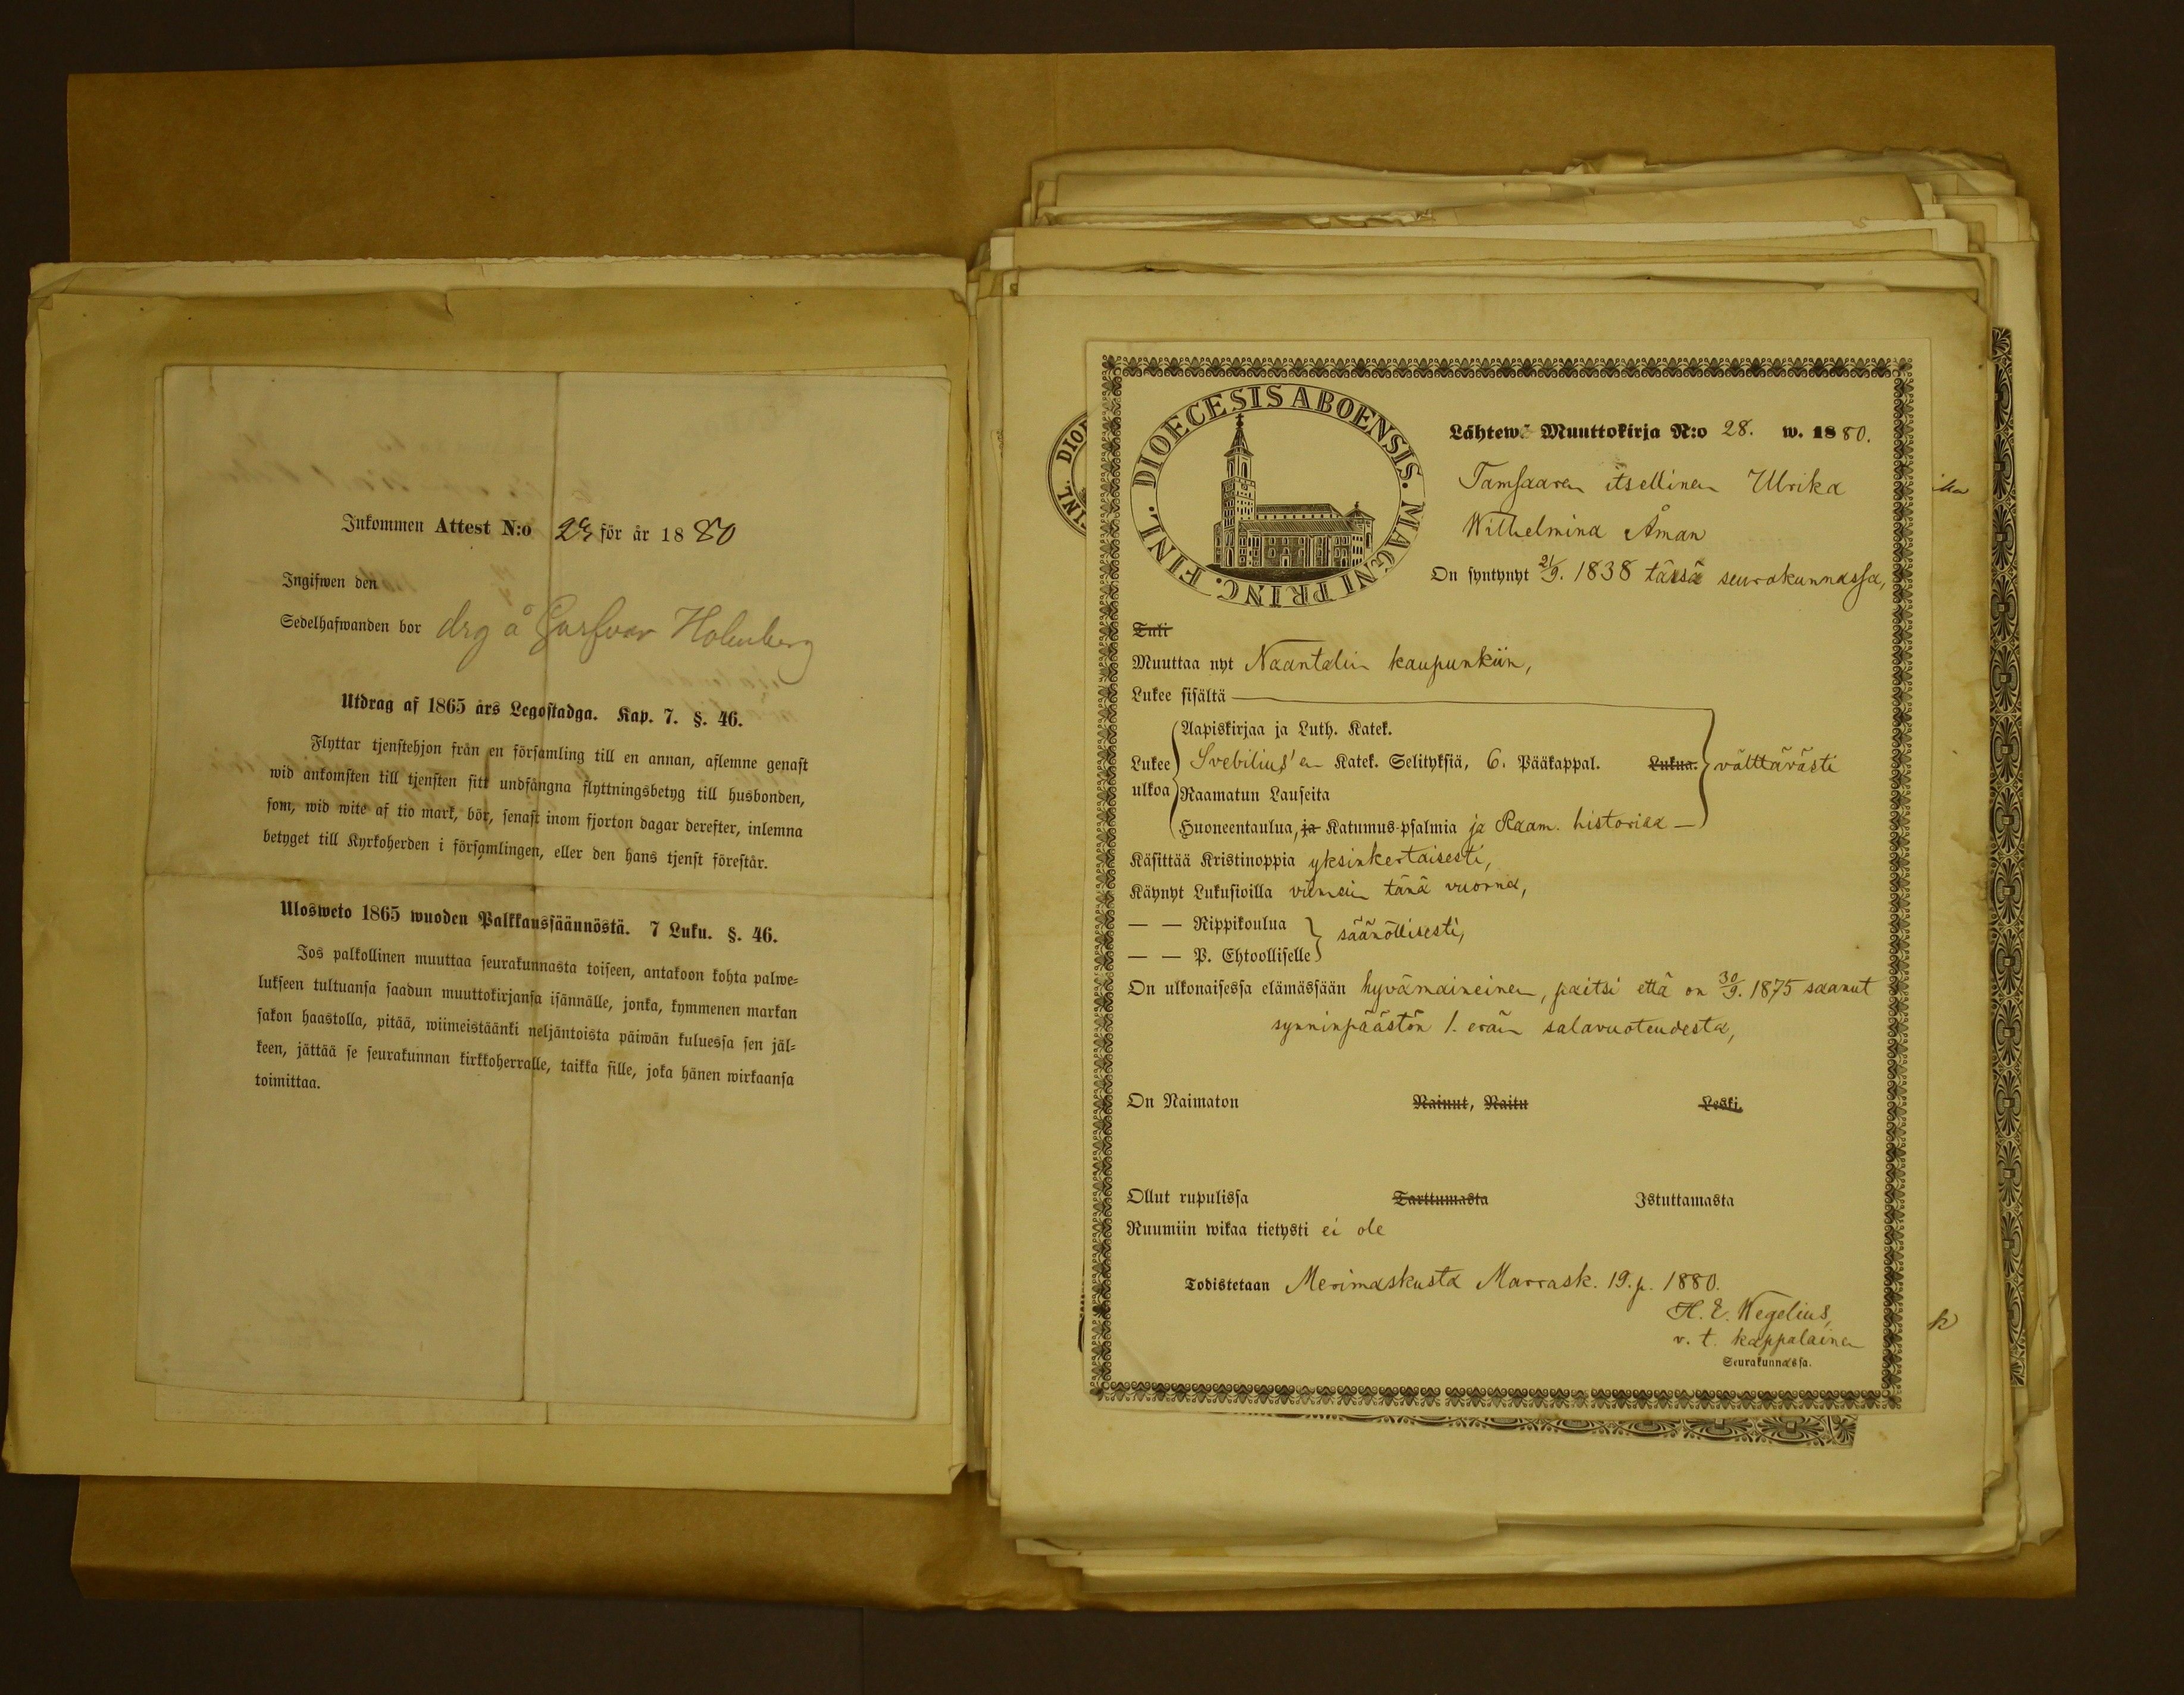 Inkommen Attest N:o 23 för år 1880
Ingifwen den
Sedelhafwanden bor drg å Garfvar Holmberg
Utdrag af 1865 års Legostadga. Kap. 7. §. 46.
Flyttar tjenstehjon från en församling till en annan, aflemne genast
wid ankomsten till tjensten sitt undfångna flyttningsbetyg till husbonden,
som, wid wite af tio mark, bör, senast inom fjorton dagar derefter, inlemna
betyget till Kyrkoherden i församlingen, eller den hans tjenst förestår.
Ulosweto 1865 wuoden Palkkaussäännöstä. 7 Luku. §. 46.
Jos palkollinen muuttaa seurakunnasta toiseen, antakoon kohta palwe=
lukseen tultuansa saadun muuttokirjansa isännälle, jonka, kymmenen markan
sakon haastolla, pitää, wiimeistäänki neljäntoista päiwän kuluessa sen jäl=
keen, jättää se seurakunnan kirkkoherralle, taikka sille, joka hänen wirkaansa
toimittaa.
DIOECESIS ABOENSIS. MAGNI PRINC. FINL.
Lähtewä Muuttokirja N:o 28. w. 1880.
Tamsaaren itsellinen Ulrika
Wilhelmina Åman
On syntynyt 21/9. 1838 tässä seurakunnassa,
Tuli
Muuttaa nyt Naantalin kaupunkiin,
Lukee sisältä
Aapiskirjaa ja Luth. Katek.
Lukee ulkoa Svebilius'en Katek. Selityksiä, 6. Pääkappal. Lukua. välttävästi
Raamatun Lauseita
Huoneentaulua, ja Katumus-psalmia ja Raam. historiaa
Käsittää Kristinoppia yksinkertaisesti,
Käynyt Lukusioilla viimein tänä vuonna,
— — Rippikoulua
säännöllisesti,
— — P. Ehtoolliselle
On ulkonaisessa elämässään hyvämaineinen, paitsi että on 30/9. 1875 saanut
synninpäästön 1. erän salavuoteudesta,
On Naimaton Nainut, Naitu Leski.
Ollut rupulissa Tarttumasta Istuttamasta
Ruumiin wikaa tietysti ei ole
Todistetaan Merimaskusta Marrask. 19. p. 1880.
H. E. Wegelius,
v. t. kappalainen
Seurakunnassa.